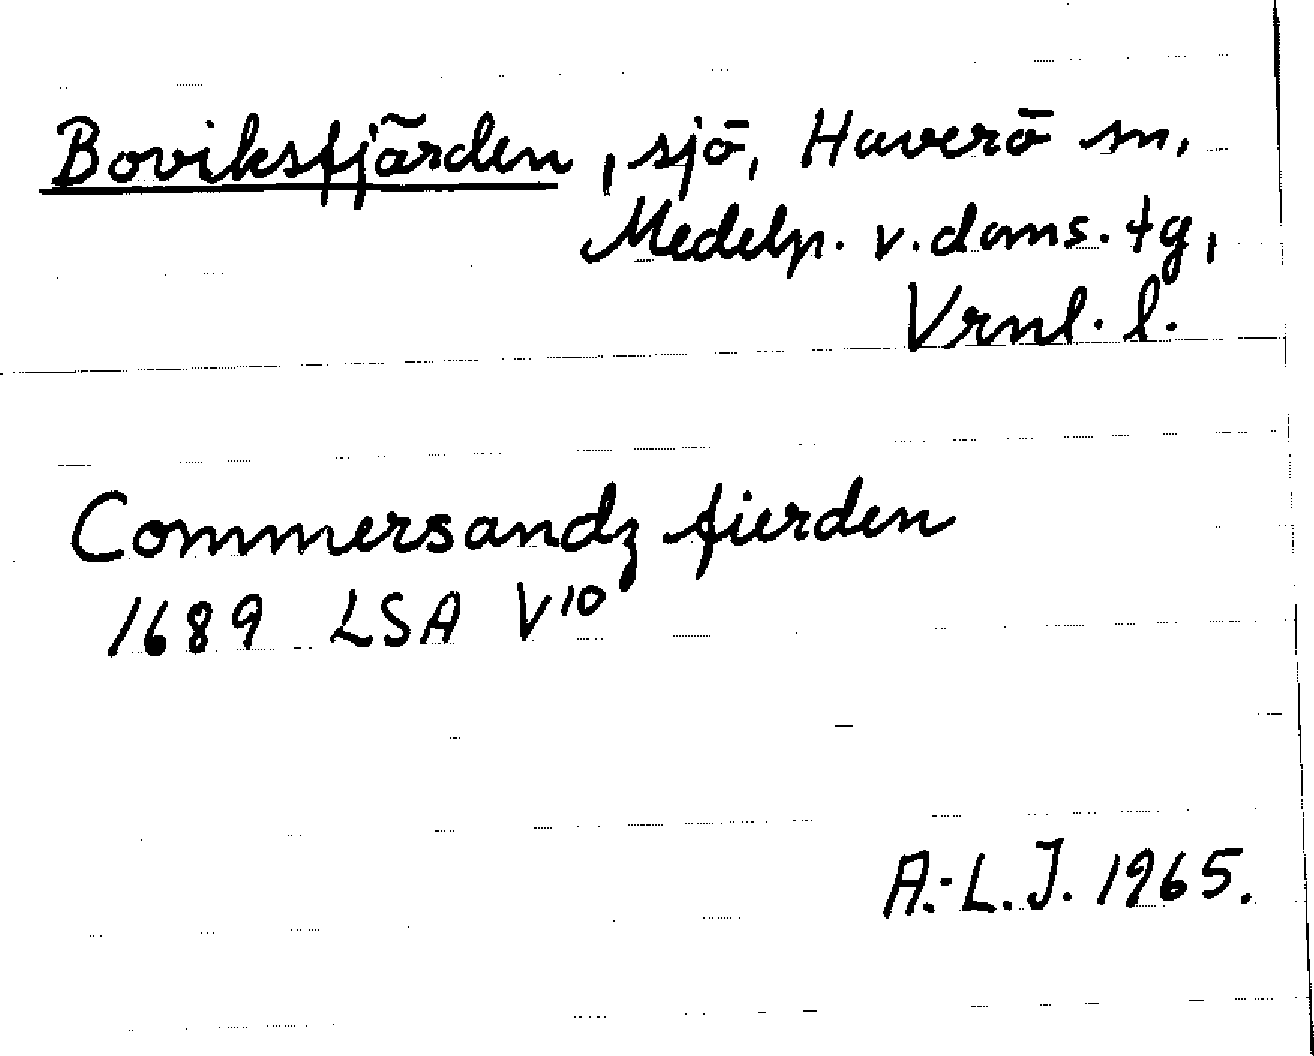 Boviksfjärden, sjö, Haverö sn,
Medelp. v. doms. tg,
Vrnl. l.
Commersandz fierden
1689 LSA V10
A.-L.J. 1965.